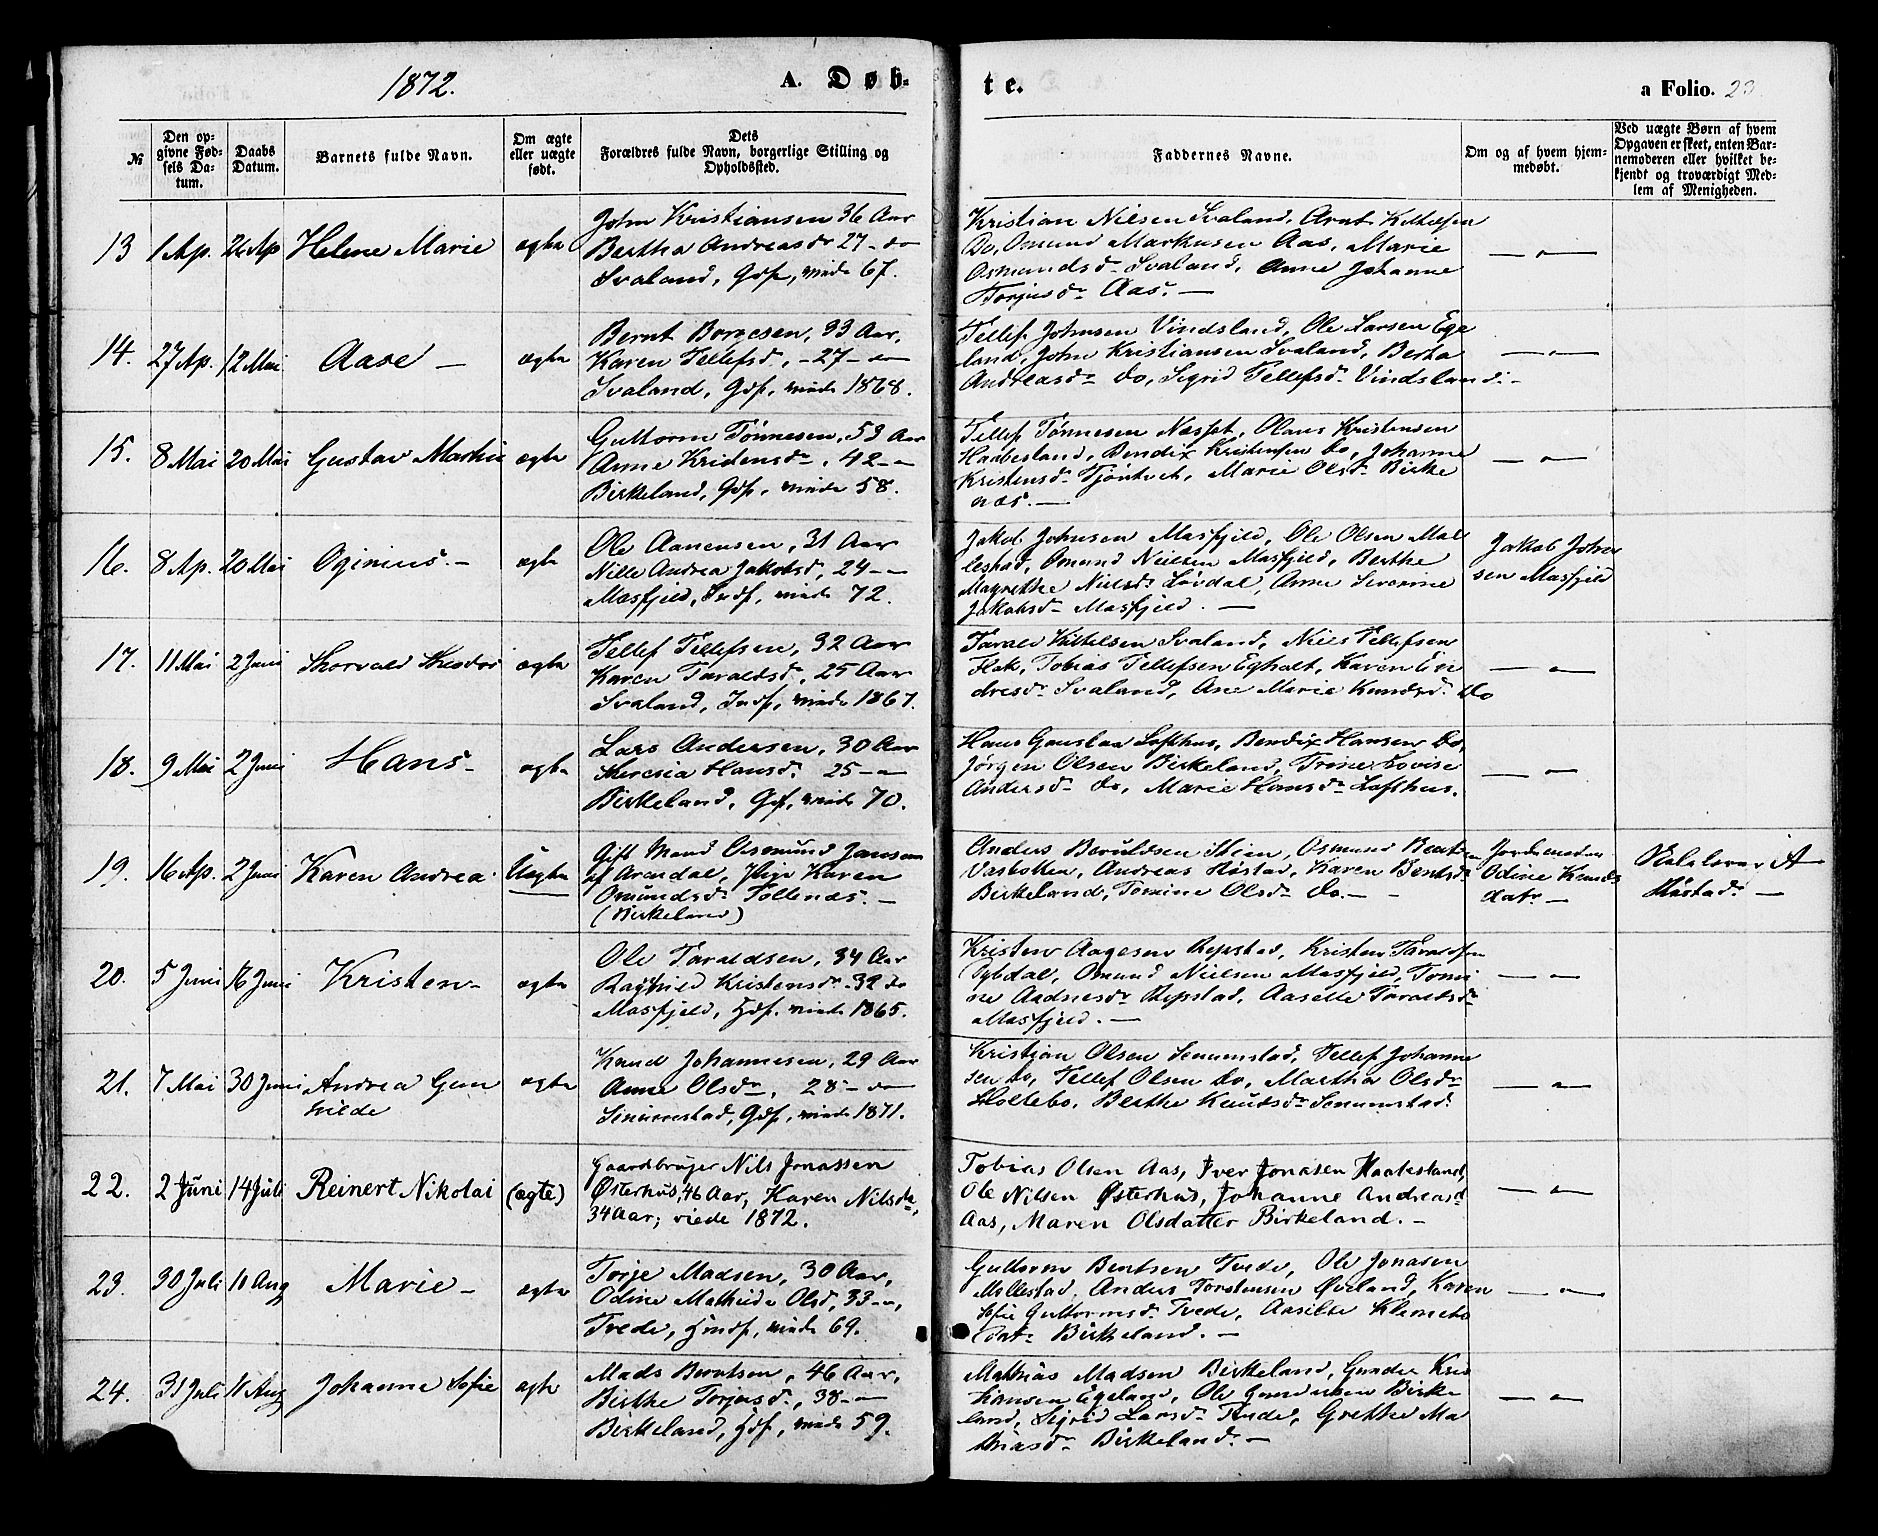 1872.
A. Døb-
te.
a Folio. 23
№
Den op-
givne Fød-
sels Da-
tum.
Daabs
Datum.
Barnets fulde Navn.
Om ægte
eller uægte
født.
Dets
Forældres fulde Navn, borgerlige Stilling og
Opholdssted.
Faddernes Navne.
Om og af hvem hjem-
medøbt.
Ved uægte Børn af hvem
Opgaven er skeet, enten Bar-
nemoderen eller hvilket be-
kjendt og troværdigt Med-
lem af Menigheden.
13 1 Ap. Helene Marie ægte
John Kristiansen 36 Aar
Bertha Andreasdr 27 - do
Svaland, Gdf, viede 67.
Kristian Nielsen Svaland,
Do, Omund Markusen Aas, Marie
Osmundsd. Svaland, Anne Johanne
Torjusdr Aas. —
— " —
14. 27 Ap. 12 Mai Aase — ægte
Bernt Borgesen, 33 Aar,
Karen Tellefsd, - 27 - do
Svaland, Gdf, viede 1868.
Tellef Johnsen Vindsland, Ole Larsen Ege
land, John Kristiansen Svaland, Berta
Andreasdr do, Sigrid Tellefsd. Vindsland. -
— " —
15. 8 Mai 20 Mai Gustav ægte
Guttorm Tönnesen, 53 Aar
Anne, 42 - "
Birkeland, Gdf, viede 58.
Tellef Tönnesen Næsset, Olaus Kristensen
Haabesland, Bendix Kristensen do, Johanne
Kristensdr, Marie Olsdr Birke
næs. —
— " —
16. 8 Ap. 20 Mai Oginius. — ægte
Ole Aanensen, 31 Aar
Nille Andrea Jakobsd, 24 - "
Masfjeld, Indf, viede 72.
Jakob Johnsen Masfjeld, Ole Olsen Mol
lestad, Omund Nielsen Masfjeld, Berthe
Magrethe Nielsdr Lövdal, Anne Severine
Jakobsdr Masfjeld. —
Jakob John
sen Masfjeld
17. 11 Mai 2 Juni Thorvald Theodor ægte
Tellef Tellefsen, 32 Aar
Karen Taraldsd, 25 Aar
Svaland, Indf, viede 1867.
Tarald Kittelsen Svaland, Niels Tellefsen
Flak, Tobias Tellefsen Egholt, Karen En
dresdr Svaland, Ane Marie Knudsdr do
— " —
18. 9 Mai 2 Juni Hans - ægte
Lars Andersen, 30 Aar
Theresia Hansd. 25 - "
Birkeland, Gdf, viede 70.
Hans Lofthus, Bendix Hansen do,
Jörgen Olsen Birkeland, Trine Lovise
Andersdr do, Marie Hansdr Lofthus.
— " —
19. 16 Ap. 2 Juni Karen Andrea. Uægte
Gift Mand Osmund Jansen
af Arendal, Pige Karen
Omundsdr
(Birkeland)
Anders, Osmund
, Andreas Håstad, Karen Bentsdr
Birkeland, Tomine Olsdr do. —
Jordemoder
Odine Knuds
datr —
A
Håstad. —
20. 5 Juni 16 Juni Kristen - ægte
Ole Taraldsen, 34 Aar
Raghnild Kristensdr 32 do
Masfjeld, Gdf. viede 1865.
Kristen Aagesen Repstad, Kristen Taraldsen
, Omund Nielsen Masfjeld, Tomi
ne Aadnesdr Repstad, Aaselle Taraldsdr
Masfjeld. —
— " —
21. 7 Mai 30 Juni Andrea Gun
hilde ægte
Knud Johannesen, 29 Aar
Anne Olsdr, 28 - do
Senumstad, Gdf, viede 1871.
Kristian Olsen Senumstad, Tellef Johanne
sen do, Tellef Olsen do, Martha Olsdr
Holtebo, Berthe Knudsdr Senumstad.
— " —
22. 2 Juni 14 Juli Reinert Nikolai (ægte)
Gaardbruger Nils Jonassen
Østerhus, 46 Aar, Karen Nilsdr,
34 Aar; viede 1872.
Tobias Olsen Aas, Iver Jonasen Haabesland,
Ole Nilsen Østerhus, Johanne Andreasd
Aas, Maren Olsdatter Birkeland. —
— " —
23. 30 Juli 11 Aug Marie - ægte
Torje Madsen, 30 Aar,
Odine Mathilde Olsd, 33 - ",
Tvede, viede 69.
Guttorm Bentsen Tvede, Ole Jonasen
Mollestad, Anders Torstensen Øveland, Karen
Sofie Guttormsd. Tvede, Aaselle Klemets
datr Birkeland. —
— " —
24. 31 Juli 11 Aug Johanne Sofie ægte
Mads Berntsen, 46 Aar,
Birthe Torjusd., 38 - "
Birkeland, Gdf, viede 59.
Mathias Madsen Birkeland, Gunder Kris
tiansen Egeland, Ole Gundersen Birke
land, Sigrid Larsdr Tvede, Grethe Ma
thiasdr Birkeland. —
— " —